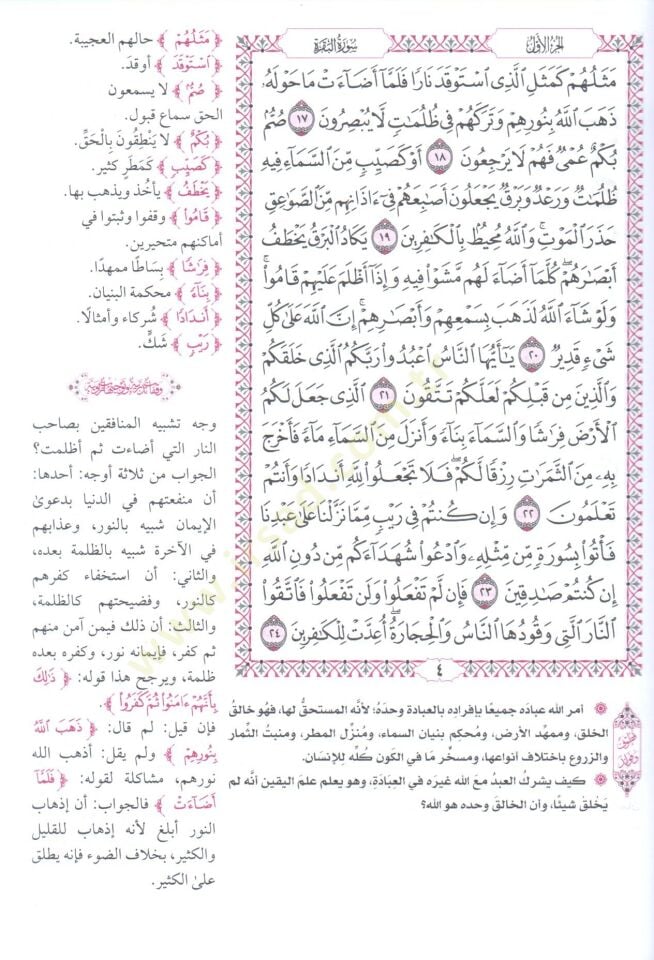 الجزء الأول
سورة البقرة
مَثَلُهُمْ كَمَثَلِ ٱلَّذِى ٱسْتَوْقَدَ نَارًا فَلَمَّآ أَضَآءَتْ مَا حَوْلَهُۥ
ذَهَبَ ٱللَّهُ بِنُورِهِمْ وَتَرَكَهُمْ فِى ظُلُمَٰتٍ لَّا يُبْصِرُونَ ١٧ صُمٌّۢ
بُكْمٌ عُمْىٌ فَهُمْ لَا يَرْجِعُونَ ١٨ أَوْ كَصَيِّبٍ مِّنَ ٱلسَّمَآءِ فِيهِ
ظُلُمَٰتٌ وَرَعْدٌ وَبَرْقٌ يَجْعَلُونَ أَصَٰبِعَهُمْ فِىٓ ءَاذَانِهِم مِّنَ ٱلصَّوَٰعِقِ
حَذَرَ ٱلْمَوْتِ ۚ وَٱللَّهُ مُحِيطٌۢ بِٱلْكَٰفِرِينَ ١٩ يَكَادُ ٱلْبَرْقُ يَخْطَفُ
أَبْصَٰرَهُمْ ۖ كُلَّمَآ أَضَآءَ لَهُم مَّشَوْا۟ فِيهِ وَإِذَآ أَظْلَمَ عَلَيْهِمْ قَامُوا۟ ۚ
وَلَوْ شَآءَ ٱللَّهُ لَذَهَبَ بِسَمْعِهِمْ وَأَبْصَٰرِهِمْ ۚ إِنَّ ٱللَّهَ عَلَىٰ كُلِّ
شَىْءٍ قَدِيرٌ ٢٠ يَٰٓأَيُّهَا ٱلنَّاسُ ٱعْبُدُوا۟ رَبَّكُمُ ٱلَّذِى خَلَقَكُمْ
وَٱلَّذِينَ مِن قَبْلِكُمْ لَعَلَّكُمْ تَتَّقُونَ ٢١ ٱلَّذِى جَعَلَ لَكُمُ
ٱلْأَرْضَ فِرَٰشًا وَٱلسَّمَآءَ بِنَآءً وَأَنزَلَ مِنَ ٱلسَّمَآءِ مَآءً فَأَخْرَجَ
بِهِۦ مِنَ ٱلثَّمَرَٰتِ رِزْقًا لَّكُمْ ۖ فَلَا تَجْعَلُوا۟ لِلَّهِ أَندَادًا وَأَنتُمْ
تَعْلَمُونَ ٢٢ وَإِن كُنتُمْ فِى رَيْبٍ مِّمَّا نَزَّلْنَا عَلَىٰ عَبْدِنَا
فَأْتُوا۟ بِسُورَةٍ مِّن مِّثْلِهِۦ وَٱدْعُوا۟ شُهَدَآءَكُم مِّن دُونِ ٱللَّهِ
إِن كُنتُمْ صَٰدِقِينَ ٢٣ فَإِن لَّمْ تَفْعَلُوا۟ وَلَن تَفْعَلُوا۟ فَٱتَّقُوا۟
ٱلنَّارَ ٱلَّتِى وَقُودُهَا ٱلنَّاسُ وَٱلْحِجَارَةُ ۖ أُعِدَّتْ لِلْكَٰفِرِينَ ٢٤
٤
﴿مَثَلُهُمْ﴾ حالهم العجيبة.
﴿ٱسْتَوْقَدَ﴾ أوقد.
﴿صُمٌّ﴾ لا يسمعون
الحق سماع قبول.
﴿بُكْمٌ﴾ لا يَنْطِقُونَ بِالْحَقِّ.
﴿كَصَيِّبٍ﴾ كَمَطَرٍ كثير.
﴿يَخْطَفُ﴾ يأخذ ويذهب بها.
﴿قَامُوا۟﴾ وقفوا وثبتوا في
أماكنهم متحيرين.
﴿فِرَٰشًا﴾ بِسَاطًا ممهدًا.
﴿بِنَآءً﴾ محكمة البنيان.
﴿أَندَادًا﴾ شُركاء وأمثالًا.
﴿رَيْبٍ﴾ شَكٍّ.
وجه تشبيه المنافقين بصاحب
النار التي أضاءت ثم أظلمت؟
الجواب من ثلاثة أوجه: أحدها:
أن منفعتهم في الدنيا بدعوى
الإيمان شبيه بالنور، وعذابهم
في الآخرة شبيه بالظلمة بعده،
والثاني: أن استخفاء كفرهم
كالنور، وفضيحتهم كالظلمة،
والثالث: أن ذلك فيمن آمن منهم
ثم كفر، فإيمانه نور، وكفره بعده
ظلمة، ويرجح هذا قوله: ﴿ذَٰلِكَ
بِأَنَّهُمْ ءَامَنُوا۟ ثُمَّ كَفَرُوا۟﴾.
فإن قيل: لم قال: ﴿ذَهَبَ ٱللَّهُ
بِنُورِهِمْ﴾ ولم يقل: أذهب الله
نورهم، مشاكلة لقوله: ﴿فَلَمَّآ
أَضَآءَتْ﴾ فالجواب: أن إذهاب
النور أبلغ لأنه إذهاب للقليل
والكثير، بخلاف الضوء فإنه يطلق
على الكثير.
أمر الله عبادَه جميعًا بإفراده بالعبادة وحدَهُ؛ لأنه المستحقُّ لها، فهُو خالق
الخلق، وممهِّد الأرض، ومُحكِم بنيان السماء، ومُنزِّل المطر، ومنبتُ الثِّمار
والزروع باختلاف أنواعها، ومسخِّر مَا في الكون كُلِّه للإنسان.
كيف يشركُ العبدُ معَ الله غيرَه في العِبَادَة، وهو يعلم علمَ اليقين أنه لم
يَخلق شيئًا، وأن الخالق وحده هو الله؟